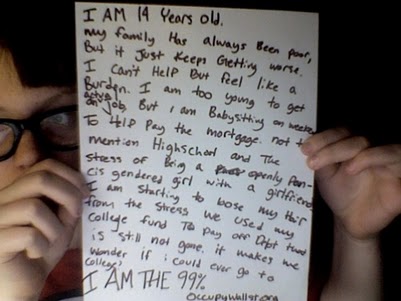 I AM 14 Years old.
my family Has always Been poor,
But it Just Keeps Getting worse.
I Can't HelP But feel like a
Burden. I am too young to get
an actual Job, But I am Babysitting on weekends
To HElP Pay the mortgage. not to
mention HighSchool and The
stress of Being a openly Pan-
cis gendered girl with a girlfriend,
I am starting to loose my hair
from the stress we used my
College fund To pay off Debt that
is still not gone. it makes me
wonder if i could ever go to
College?
I AM THE 99%
OccupyWallSt.org